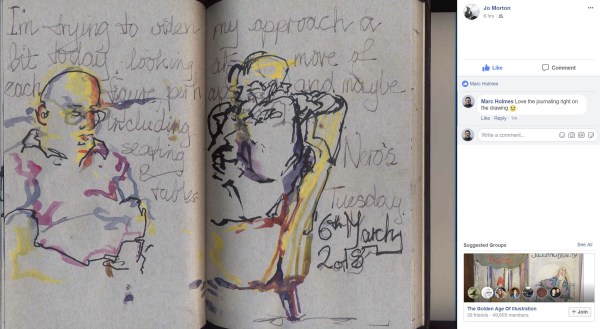 I'm trying to widen my approach a
bit today looking at more of
each figure perhaps and maybe
including
seating
&
tables
Nero's
Tuesday
6th March
2018
Jo Morton
6 hrs
Like
Comment
Marc Holmes
Marc Holmes Love the journaling right on
the drawing
Like · Reply · 1m
Write a comment...
Suggested Groups
See All
The Golden Age Of Illustration
38 friends · 40,605 members
+ Join